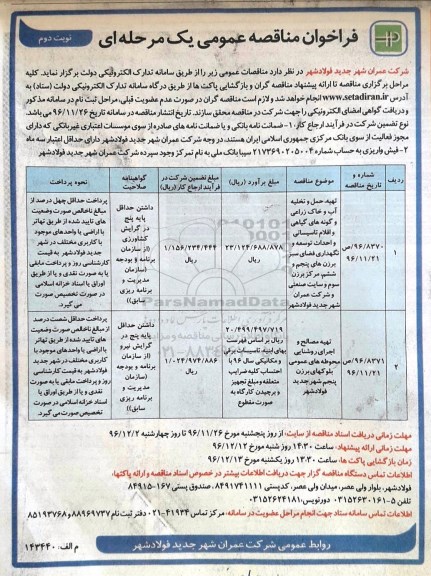 فراخوان مناقصه عمومی یک مرحله ای
نوبت دوم
شرکت عمران شهر جدید فولادشهر در نظر دارد مناقصات عمومی زیر را از طریق سامانه تدارک الکترونیکی دولت برگزار نماید. کلیه
مراحل برگزاری مناقصه تا ارائه پیشنهاد مناقصه گران و بازگشایی پاکت ها از طریق درگاه سامانه تدارک الکترونیکی دولت (ستاد) به
آدرس www.setadiran.ir انجام خواهد شد و لازم است مناقصه گران در صورت عدم عضویت قبلی، مراحل ثبت نام در سامانه مذکور
و دریافت گواهی امضای الکترونیکی را جهت شرکت در مناقصه محقق سازند. تاریخ انتشار مناقصه در سامانه تاریخ ۹۶/۱۱/۲۶ می باشد.
نوع تضمین شرکت در فرآیند ارجاع کار: ۱- ضمانت نامه بانکی و یا ضمانت نامه های صادره از سوی موسسات اعتباری غیربانکی که دارای
مجوز فعالیت از سوی بانک مرکزی جمهوری اسلامی ایران هستند، در وجه شرکت عمران شهر جدید فولادشهر دارای حداقل اعتبار سه ماه
۲- فیش واریزی به حساب شماره ۲۱۷۳۶۹۰۲۰۵۰۰۴ سیبا بانک ملی به نام تمرکز وجوه سپرده شرکت عمران شهر جدید فولادشهر
ردیف
شماره و تاریخ مناقصه
موضوع مناقصه
مبلغ برآورد (ریال)
مبلغ تضمین شرکت در فرآیند ارجاع کار (ریال)
گواهینامه صلاحیت
نحوه پرداخت
۱
۹۶/۸۳۷۰/ص
۹۶/۱۱/۲۱
تهیه، حمل و تخلیه
آب و خاک زراعی
و گونه های گیاهی
و اقلام تاسیساتی
و احداث توسعه و
نگهداری فضای سبز
برزن های پنجم و
ششم، مرکز برزن
سوم و سایت صنعتی
و شرکت عمران
شهر جدید فولادشهر
۲۳/۱۲۴/۶۸۸/۸۷۸
ریال
۱/۱۵۶/۲۳۴/۴۴۴
ریال
داشتن حداقل
پایه پنج
در گرایش
کشاورزی
(از سازمان
برنامه و بودجه
(سازمان
مدیریت و
برنامه ریزی
سابق))
پرداخت حداقل چهل درصد از
مبالغ ناخالص صورت وضعیت
های تایید شده از طریق تهاتر
با اراضی یا واحدهای موجود
با کاربری مختلف در شهر
جدید فولادشهر به قیمت
کارشناسی روز و پرداخت مابقی
یا به صورت نقدی و یا از طریق
اوراق یا اسناد خزانه اسلامی
در صورت تخصیص صورت
می گیرد.
۲
۹۶/۸۳۷۱/ص
۹۶/۱۱/۲۱
تهیه مصالح و
اجرای روشنایی
محوطه های عمومی
بلوکهای برزن
پنجم شهر جدید
فولادشهر
۲۰/۴۹۹/۴۹۷/۷۱۹
ریال بر اساس فهرست
بهای ابنیه تاسیسات برقی
و مکانیکی سال ۹۶ با
احتساب کلیه ضرایب
متعلقه و مبلغ تجهیز
و برچیدن کارگاه به
صورت مقطوع
۱/۰۲۳/۹۷۴/۸۸۶
ریال
داشتن حداقل
پایه پنج در
گرایش نیرو
(از سازمان
برنامه و بودجه
(سازمان
مدیریت و
برنامه ریزی
سابق))
پرداخت حداقل شصت درصد
از مبالغ ناخالص صورت وضعیت
های تایید شده از طریق تهاتر
با اراضی یا واحدهای موجود با
کاربری مختلف در شهر جدید
فولادشهر به قیمت کارشناسی
روز و پرداخت مابقی یا به صورت
نقدی و یا از طریق اوراق یا
اسناد خزانه اسلامی در صورت
تخصیص صورت می گیرد.
مهلت زمانی دریافت اسناد مناقصه از سایت: از روز پنجشنبه مورخ ۹۶/۱۱/۲۶ تا روز چهارشنبه ۹۶/۱۲/۲
مهلت زمانی ارائه پیشنهاد: ساعت ۱۴:۳۰ روز شنبه مورخ ۹۶/۱۲/۱۲
زمان بازگشایی پاکت ها: ساعت ۱۲:۳۰ روز یکشنبه مورخ ۹۶/۱۲/۱۳
اطلاعات تماس دستگاه مناقصه گزار جهت دریافت اطلاعات بیشتر در خصوص اسناد مناقصه و ارائه پاکتها،
فولادشهر، بلوار ولی عصر، میدان ولی عصر، کدپستی ۸۴۹۱۷۴۱۱۱۱، صندوق پستی ۱۶۷-۸۴۹۱۵
تلفن ۵-۰۳۱۵۲۶۳۰۱۶۱ دورنویس: ۰۳۱۵۲۶۲۴۱۸۱
اطلاعات تماس سامانه ستاد جهت انجام مراحل عضویت در سامانه: مرکز تماس ۴۱۹۳۴-۰۲۱ دفتر ثبت نام ۸۸۹۶۹۷۳۷ و ۸۵۱۹۳۷۶۸
روابط عمومی شرکت عمران شهر جدید فولادشهر
م الف: ۱۴۳۴۴۰